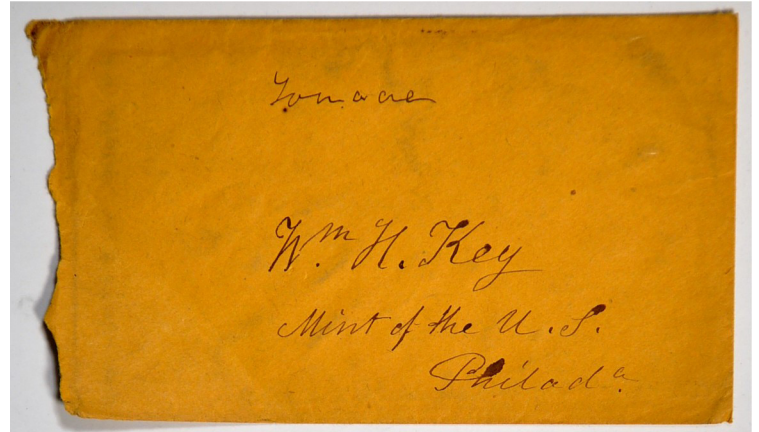 Wm. H. Key
Mint of the U. S.
Philada.